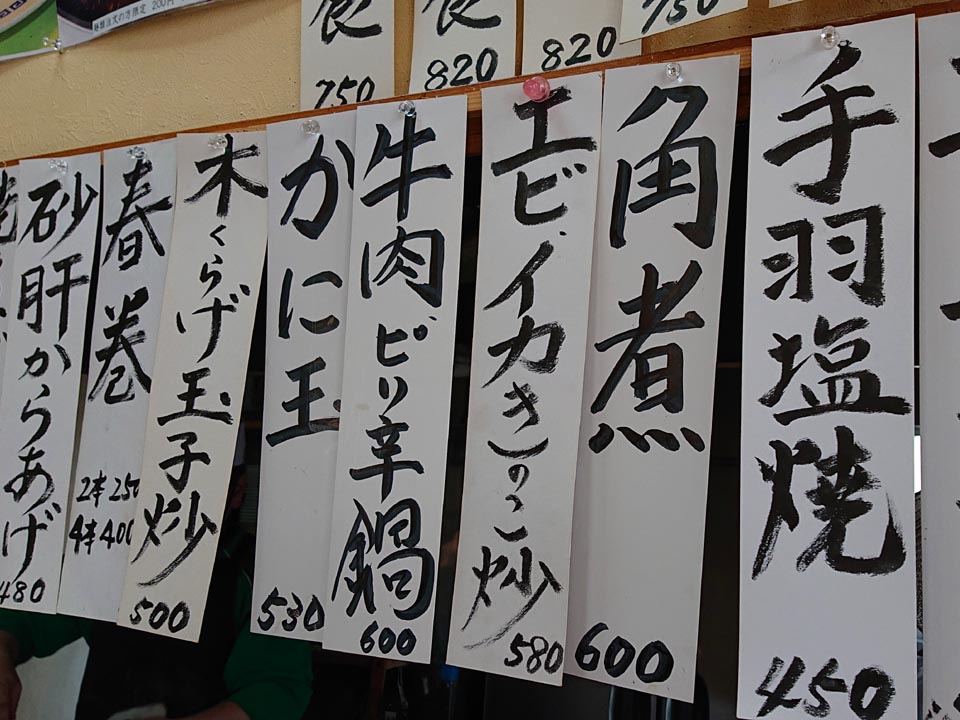 手羽塩焼
450
角煮
600
エビ、イカきのこ炒
580
牛肉ピリ辛鍋
600
かに玉
530
木くらげ玉子炒
500
春巻
2本250
4本400
砂肝からあげ
480
750
820
820
食
750